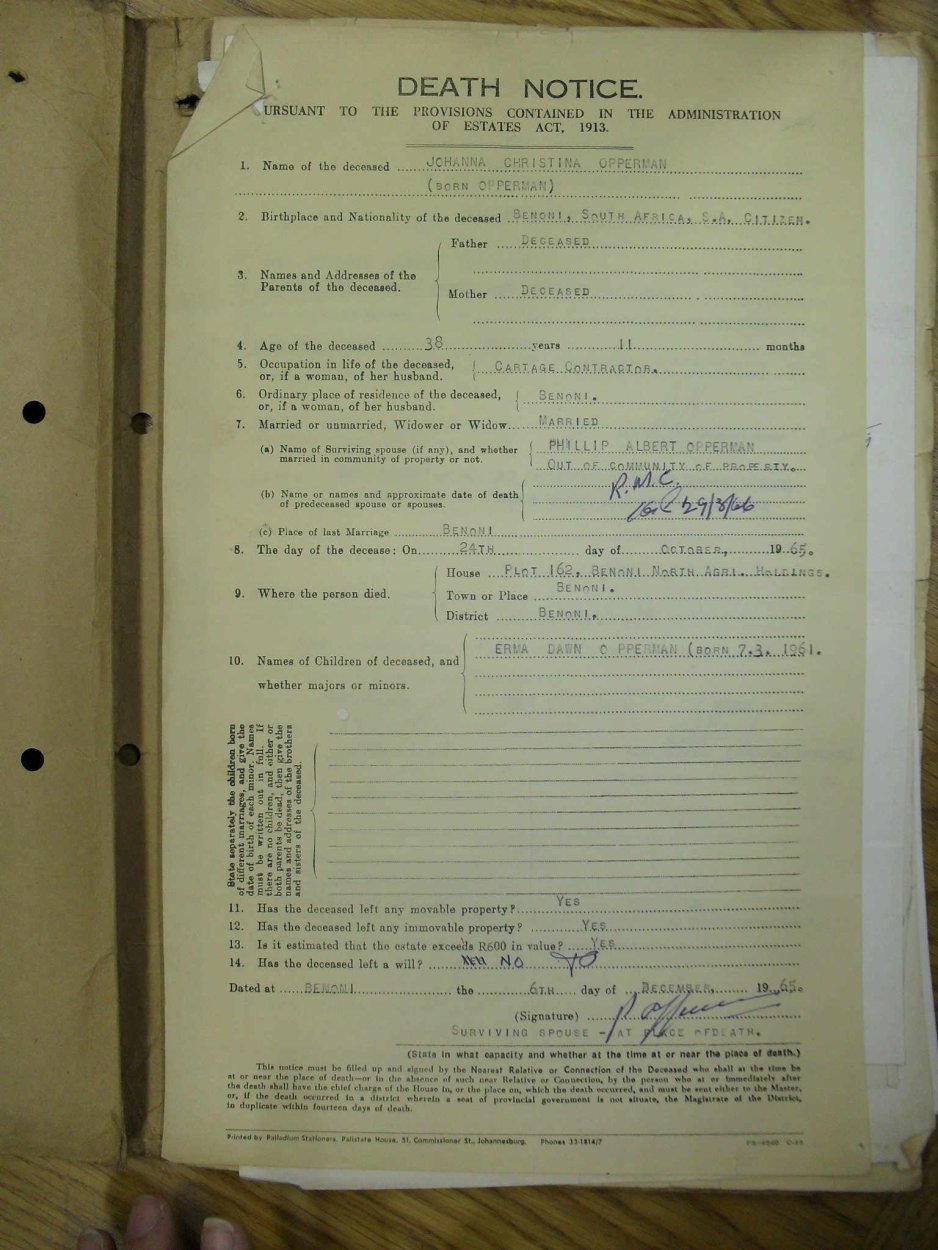 DEATH NOTICE.
URSUANT TO THE PROVISIONS CONTAINED IN THE ADMINISTRATION
OF ESTATES ACT, 1913.
1. Name of the deceased JOHANNA CHRISTINA OPPERMAN
(BORN OPPERMAN)
2. Birthplace and Nationality of the deceased BENONI, SOUTH AFRICA, S.A. CITIZEN.
3. Names and Addresses of the Parents of the deceased.
Father DECEASED
Mother DECEASED
4. Age of the deceased 38 years 11 months
5. Occupation in life of the deceased,
or, if a woman, of her husband. CARTAGE CONTRACTOR.
6. Ordinary place of residence of the deceased,
or, if a woman, of her husband. BENONI.
7. Married or unmarried, Widower or Widow MARRIED
(a) Name of Surviving spouse (if any), and whether
married in community of property or not.
PHILLIP ALBERT OPPERMAN
OUT OF COMMUNITY OF PROPERTY.
(b) Name or names and approximate date of death
of predeceased spouse or spouses.
R.M.C.
29/3/66
(c) Place of last Marriage BENONI
8. The day of the decease: On 24TH day of OCTOBER, 1965.
9. Where the person died.
House PLOT 162, BENONI NORTH AGRI. HOLDINGS.
Town or Place BENONI.
District BENONI.
10. Names of Children of deceased, and
whether majors or minors.
ERMA DAWN O PPERMAN (BORN 7.3. 1961.
State separately the children born
of different marriages, and give the
date of birth of each minor. Names
must be written out in full. If
there are no children, and either or
both parents be dead, then give the
names and addresses of the brothers
and sisters of the deceased.
11. Has the deceased left any movable property? YES
12. Has the deceased left any immovable property? YES.
13. Is it estimated that the estate exceeds R600 in value? YES.
14. Has the deceased left a will? NO
Dated at BENONI the 6TH day of DECEMBER, 1965.
(Signature)
SURVIVING SPOUSE - AT PLACE OFDEATH.
(State in what capacity and whether at the time at or near the place of death.)
This notice must be filled up and signed by the Nearest Relative or Connection of the Deceased who shall at the time be
at or near the place of death—or in the absence of such near Relative or Connection, by the person who at or immediately after
the death shall have the chief charge of the House in, or the place on, which the death occurred, and must be sent either to the Master,
or, if the death occurred in a district wherein a seat of provincial government is not situate, the Magistrate of the District,
in duplicate within fourteen days of death.
Printed by Palladium Stationers, Palistate House, 51, Commissioner St., Johannesburg. Phones 33-1814/7